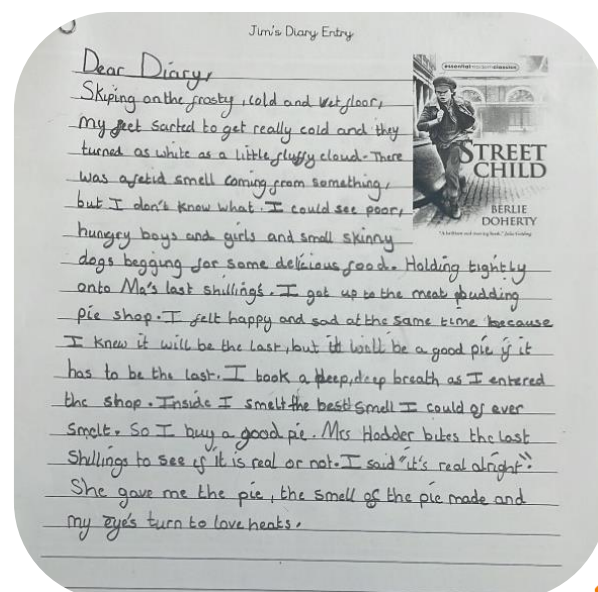 Jim's Diary Entry
Dear Diary,
Skiping on the frosty, cold and wet floor,
my feet sarted to get really cold and they
turned as white as a little fluffy cloud. There
was a fetid smell coming from something,
but I don't know what. I could see poor,
hungry boys and girls and small skinny
dogs begging for some delicious food. Holding tightly
onto Ma's last shillings. I got up to the meat pudding
pie shop. I felt happy and sad at the same time because
I knew it will be the last, but it will be a good pie if it
has to be the last. I took a deep, deep breath as I entered
the shop. Inside I smelt the best smell I could of ever
smelt. So I buy a good pie. Mrs Hodder bites the last
shillings to see if it is real or not. I said "it's real alright".
She gave me the pie, the smell of the pie made and
my eye's turn to love heats.
essential modern classics
STREET
CHILD
BERLIE
DOHERTY